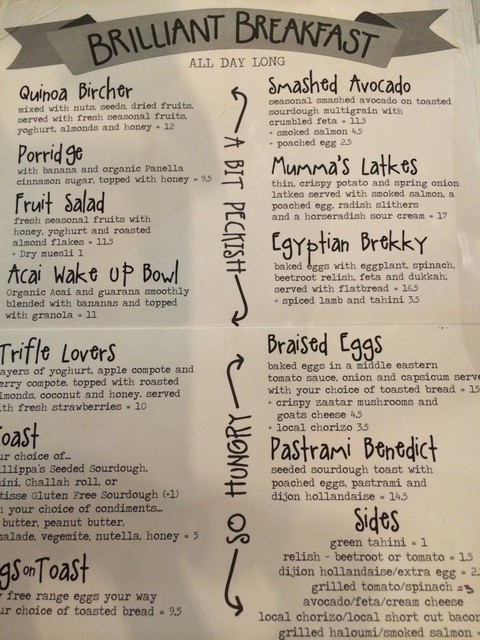 BRILLIANT BREAKFAST
ALL DAY LONG
Quinoa Bircher
mixed with nuts, seeds, dried fruits,
served with fresh seasonal fruits,
yoghurt, almonds and honey = 12
Porridge
with banana and organic Panella
cinnamon sugar, topped with honey = 9.5
Fruit Salad
fresh seasonal fruits with
honey, yoghurt and roasted
almond flakes = 11.5
+ Dry muesli 1
Acai Wake Up Bowl
Organic Acai and guarana smoothly
blended with bananas and topped
with granola = 11
Trifle Lovers
ayers of yoghurt, apple compote and
erry compote, topped with roasted
lmonds, coconut and honey, served
ith fresh strawberries = 10
oast
ur choice of...
illippa's Seeded Sourdough,
ini, Challah roll, or
tisse Gluten Free Sourdough (+1)
h your choice of condiments...
butter, peanut butter,
alade, vegemite, nutella, honey = 5
gs on Toast
free range eggs your way
ur choice of toasted bread = 9.5
A BIT PECKISH
SO HUNGRY
Smashed Avocado
seasonal smashed avocado on toasted
sourdough multigrain with
crumbled feta = 11.5
+ smoked salmon 4.5
+ poached egg 2.5
Mumma's Latkes
thin, crispy potato and spring onion
latkes served with smoked salmon, a
poached egg, radish slithers
and a horseradish sour cream = 17
Egyptian Brekky
baked eggs with eggplant, spinach,
beetroot relish, feta and dukkah;
served with flatbread = 16.5
+ spiced lamb and tahini 3.5
Braised Eggs
baked eggs in a middle eastern
tomato sauce, onion and capsicum serve
with your choice of toasted bread = 15
+ crispy zaatar mushrooms and
goats cheese 4.5
+ local chorizo 3.5
Pastrami Benedict
seeded sourdough toast with
poached eggs, pastrami and
dijon hollandaise = 14.5
Sides
green tahini = 1
relish - beetroot or tomato = 1.5
dijon hollandaise/extra egg = 2.
grilled tomato/spinach = 3
avocado/feta/cream cheese
local chorizo/local short cut bacon
grilled haloumi/smoked salmon =